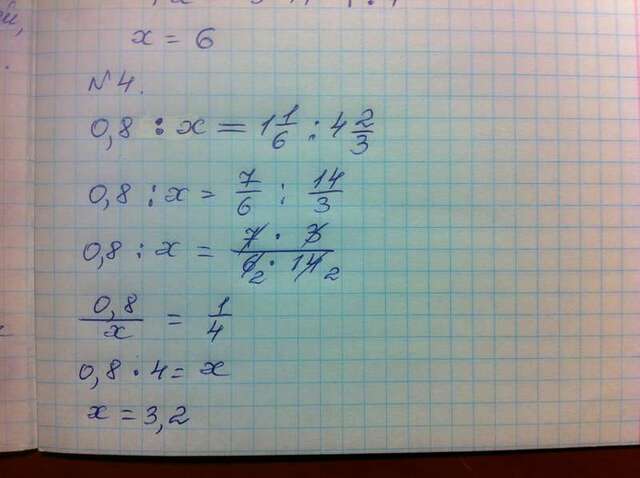 x = 6
№4.
0,8 : x = 1 1/6 : 4 2/3
0,8 : x = 7/6 : 14/3
0,8 : x = 7 · 3 / 6 2 · 14 2
0,8/x = 1/4
0,8 · 4 = x
x = 3,2